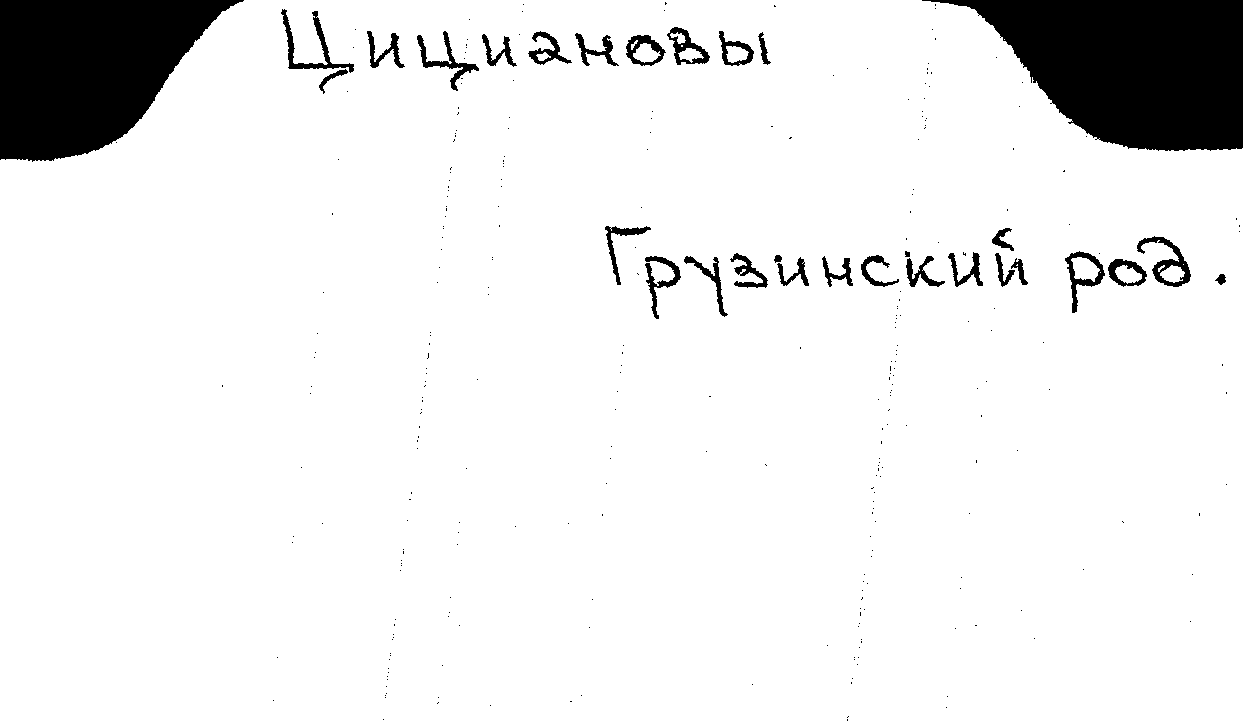 Цициановы
Грузинский род.